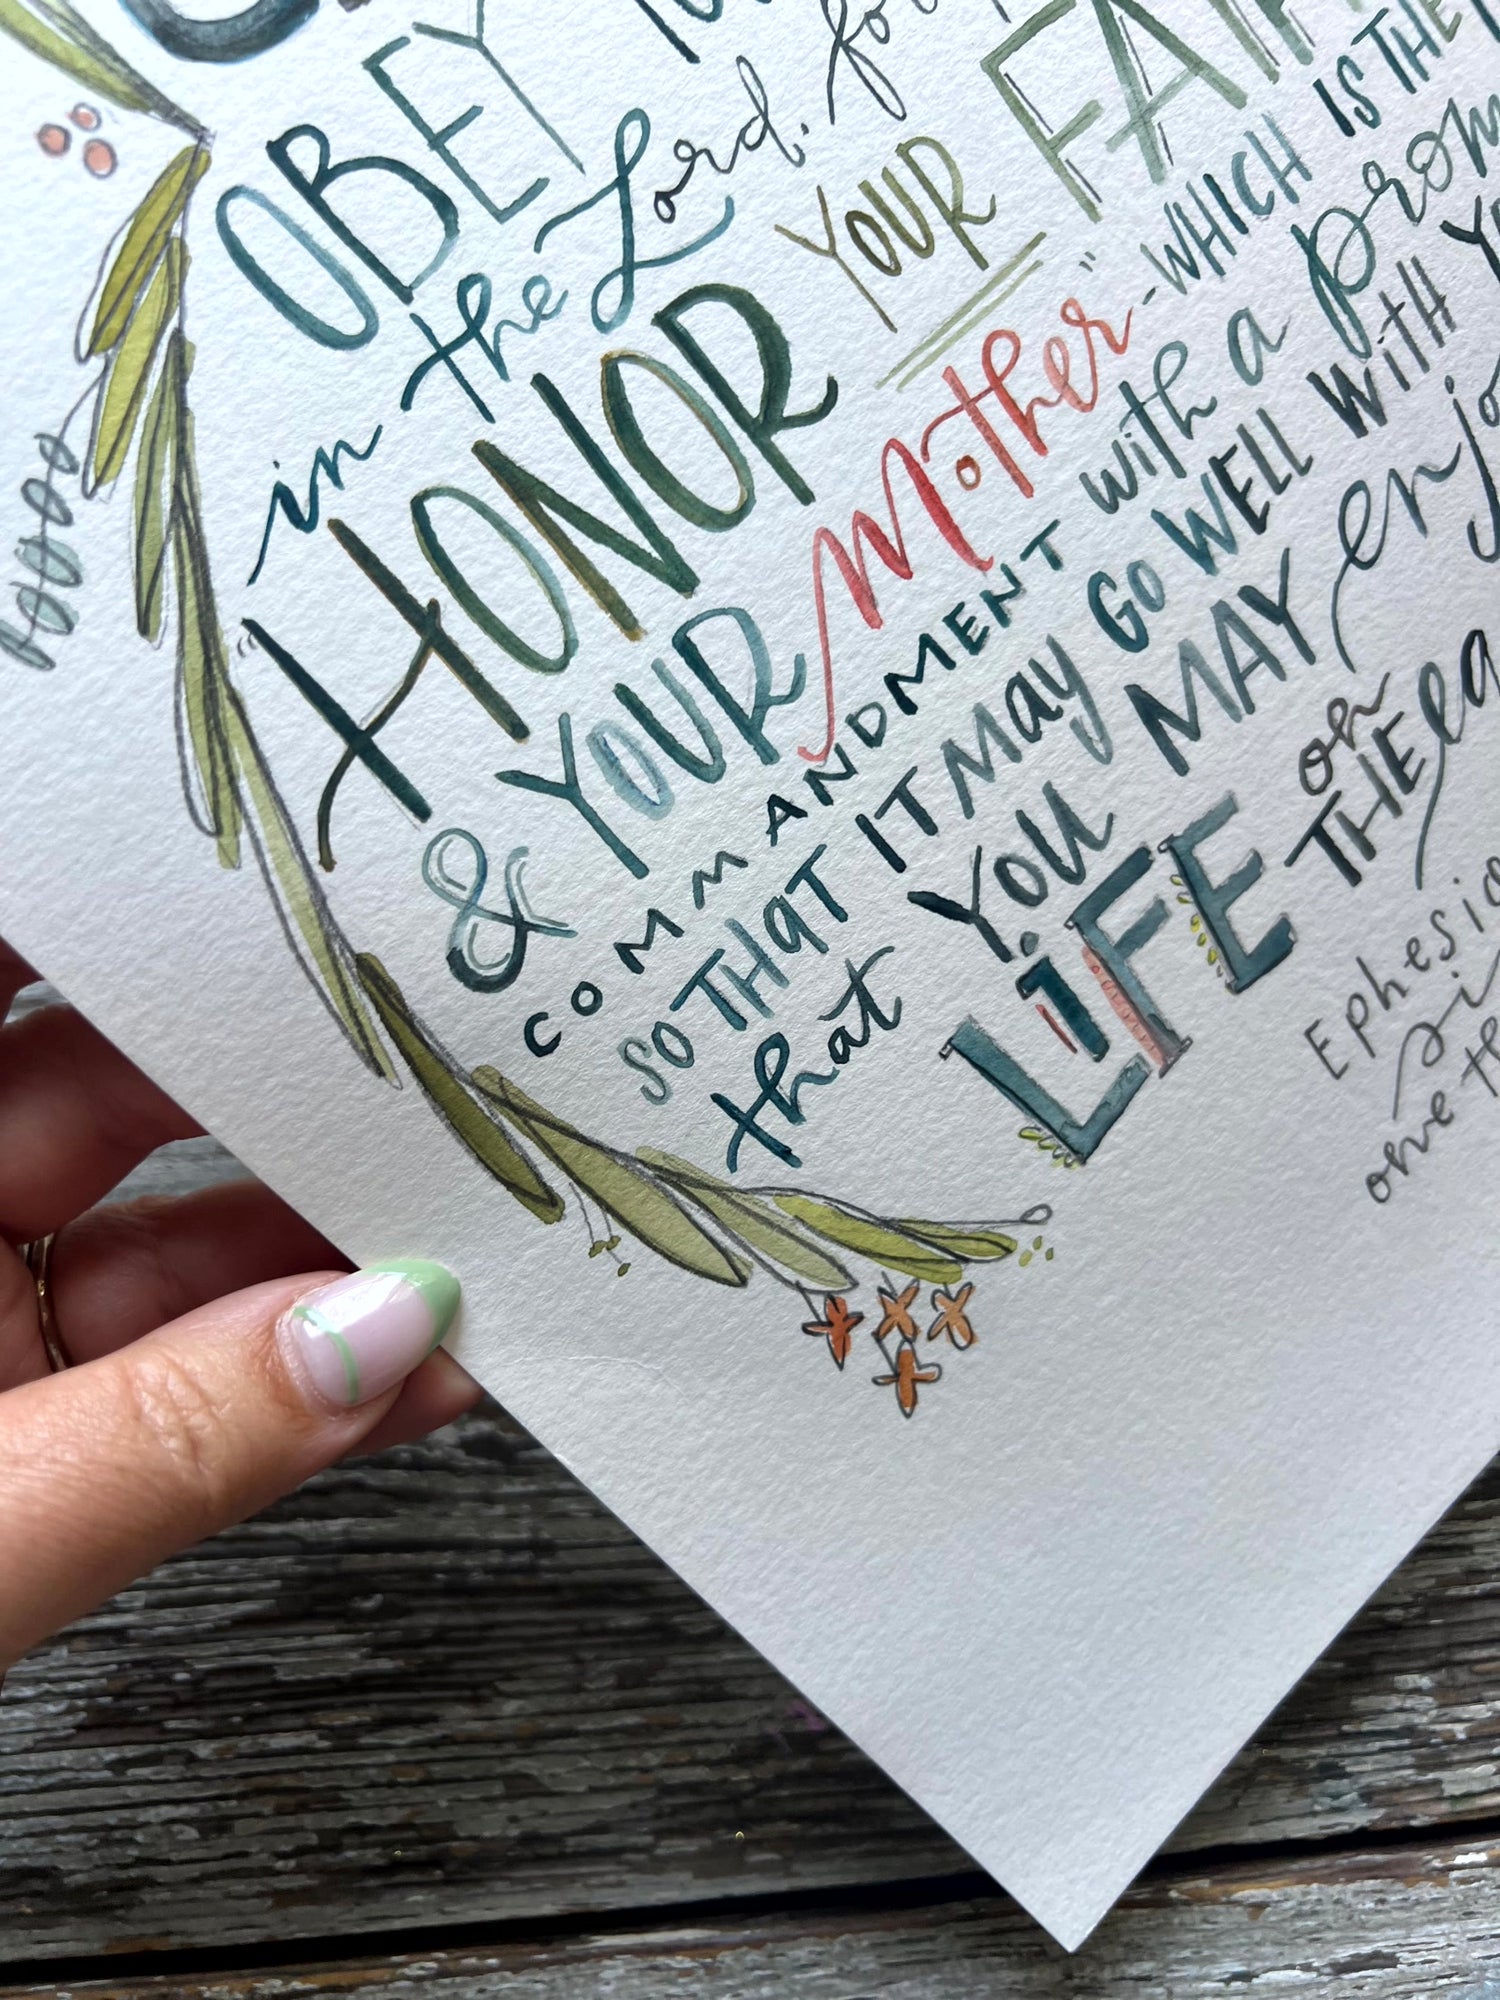 OBEY
in the Lord. for
HONOR YOUR
& YOUR Mother" - WHICH IS THE
COMMANDMENT with a
SO THAT IT MAY GO WELL WITH
that YOU MAY
LIFE on THE
one